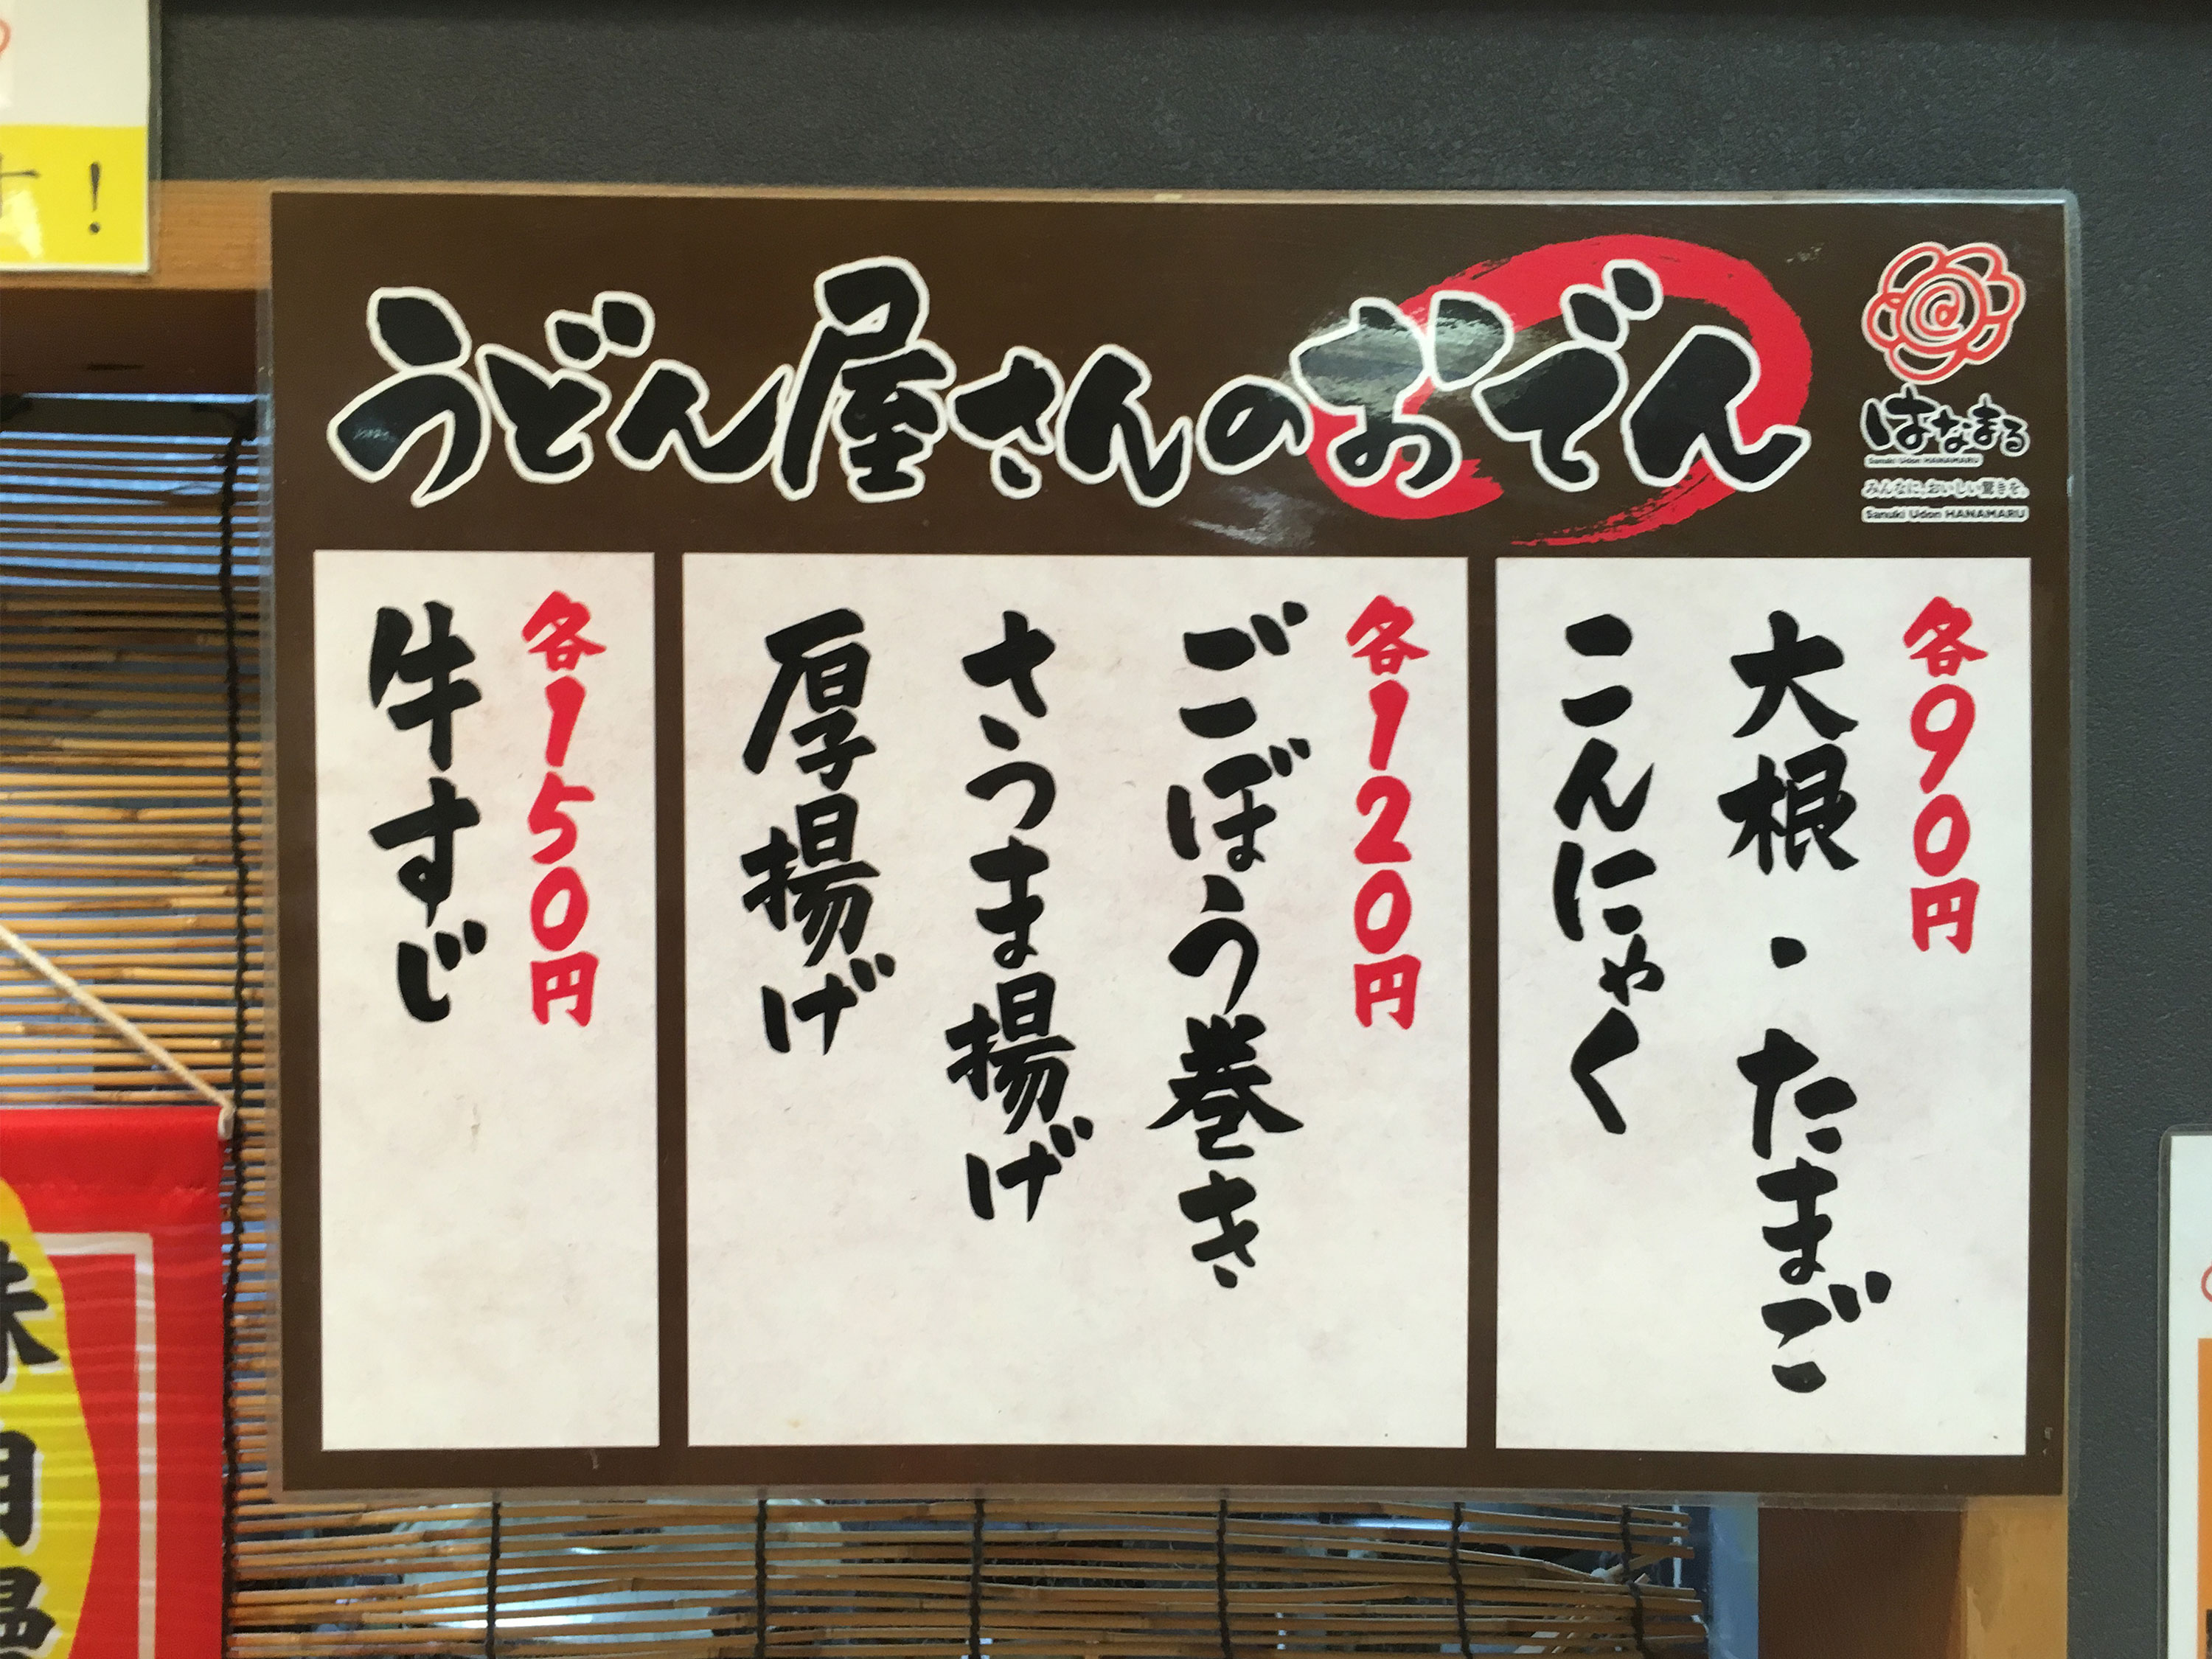 うどん屋さんのおでん
はなまる
Sanuki Udon HANAMARU
みんなに、おいしい驚きを。
Sanuki Udon HANAMARU
各90円
大根・たまご
こんにゃく
各120円
ごぼう巻き
さつま揚げ
厚揚げ
各150円
牛すじ
！